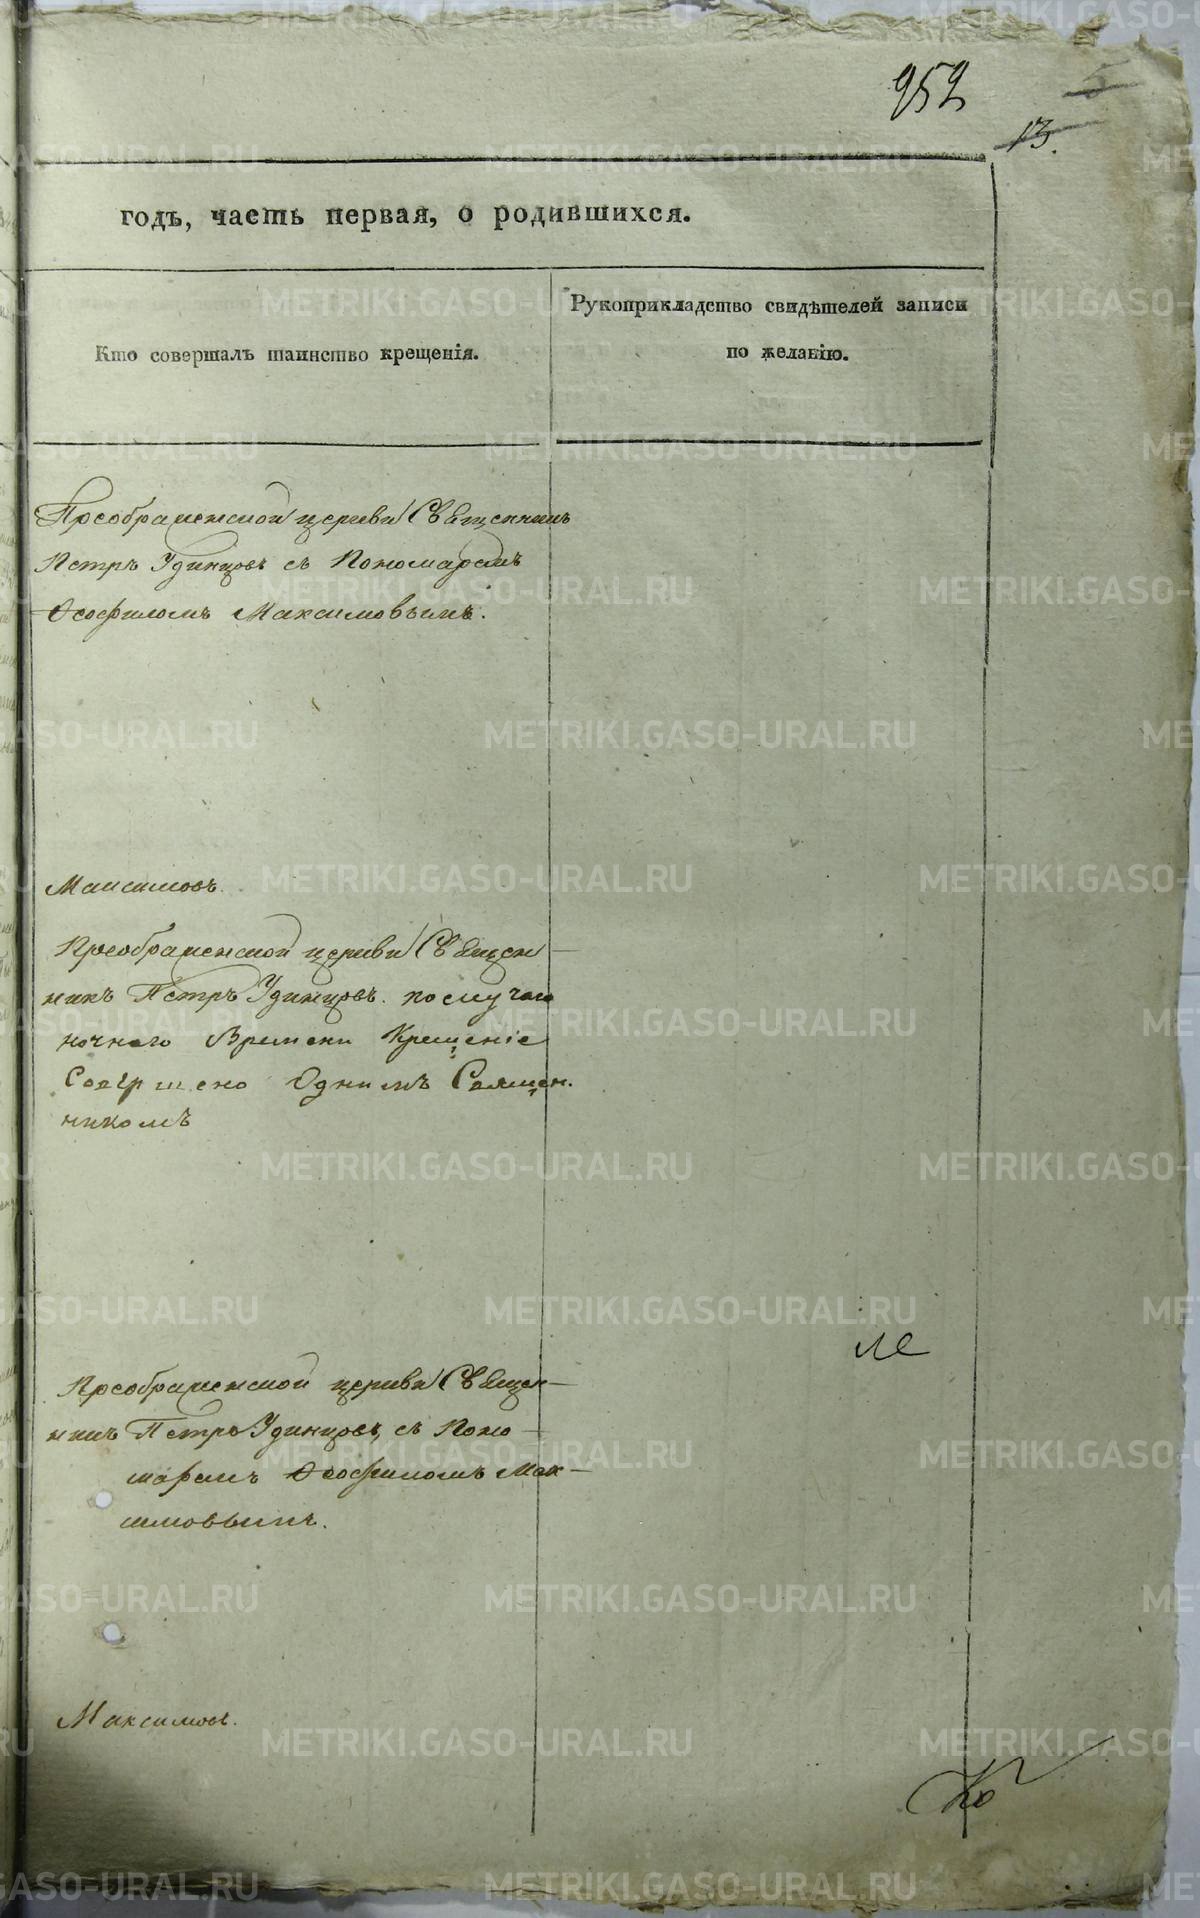 952
5
13.
годъ, часть первая, о родившихся.
Кто совершалъ таинство крещенія.
Рукоприкладство свидѣтелей записи
по желанію.
Преображенской церкви Священникъ
Петръ Удинцовъ съ Пономаремъ
Ѳеофиломъ Максимовымъ.
Максимовъ.
Преображенской церкви Священ
никъ Петръ Удинцовъ. по случаю
ночнаго Времени Крещеніе
Совершено Однимъ Священ.
никомъ
Преображенской церкви Священ
никъ Петръ Удинцовъ, съ Поно
маремъ Ѳеофиломъ Мак
симовымъ.
Максимовъ.
Ко
METRIKI.GASO-URAL.RU